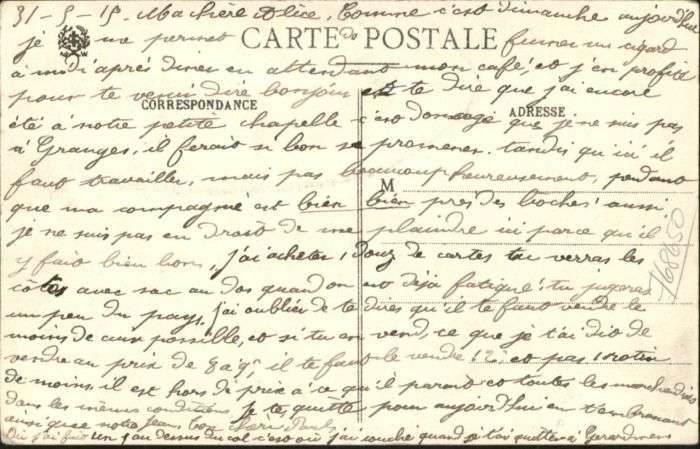 31-5-15 Ma chère Alice, Comme c'est dimanche aujourd'hui
je me permet de fumer un cigard
CARTE POSTALE
à midi après diner en attendant mon café, et j'en profite
pour te venir dire bonjour et te dire que j'ai encore
CORRESPONDANCE
ADRESSE
été à notre petite chapelle c'est domage que je ne suis pas
à Granges, il ferait si bon se promener tandis qu'ici il
faut travailler, mais pas beaucoup heureusement, pendant
M
que ma compagnie est bien bien près des boches aussi
je ne suis pas en droit de me plaindre ici parce qu'il
y fait bien bon, j'ai acheter 1 douz de cartes tu verras les
côtes avec sac au dos quand on est déja fatigué! tu jugeras
un peu du pays, j'ai oublier de te dire qu'il te faut vendre le
moins de possible, et si tu en vend, ce que je t'ai dit de
vendre au prix de 8 à 9 il te faut le vendre 12, et pas 1 rotin
de moins, il est hors de prix à ce qu'il parait et toutes les marchandises
dans les mêmes conditions, je te quitte pour aujourd'hui en t'embrassant
ainsi que notre Jean, ton cheri
où j'ai fait un au dessus du col c'est où j'ai couché quand je t'ai quitter à Gerardmer
168050